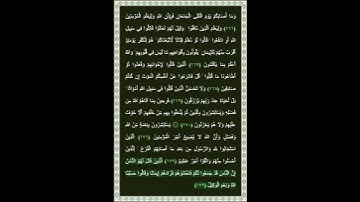 وما أصابكم يوم التقى الجمعان فبإذن الله وليعلم المؤمنين
(١٦٦) وليعلم الذين نافقوا وقيل لهم تعالوا قاتلوا في سبيل
الله أو ادفعوا قالوا لو نعلم قتالا لاتبعناكم هم للكفر يومئذ
أقرب منهم للإيمان يقولون بأفواههم ما ليس في قلوبهم والله
أعلم بما يكتمون (١٦٧) الذين قالوا لإخوانهم وقعدوا لو
أطاعونا ما قتلوا قل فادرءوا عن أنفسكم الموت إن كنتم
صادقين (١٦٨) ولا تحسبن الذين قتلوا في سبيل الله أمواتا
بل أحياء عند ربهم يرزقون (١٦٩) فرحين بما آتاهم الله من
فضله ويستبشرون بالذين لم يلحقوا بهم من خلفهم ألا خوف
عليهم ولا هم يحزنون (١٧٠) ۞ يستبشرون بنعمة من الله
وفضل وأن الله لا يضيع أجر المؤمنين (١٧١) الذين
استجابوا لله والرسول من بعد ما أصابهم القرح للذين
أحسنوا منهم واتقوا أجر عظيم (١٧٢) الذين قال لهم الناس
إن الناس قد جمعوا لكم فاخشوهم فزادهم إيمانا وقالوا حسبنا
الله ونعم الوكيل (١٧٣)